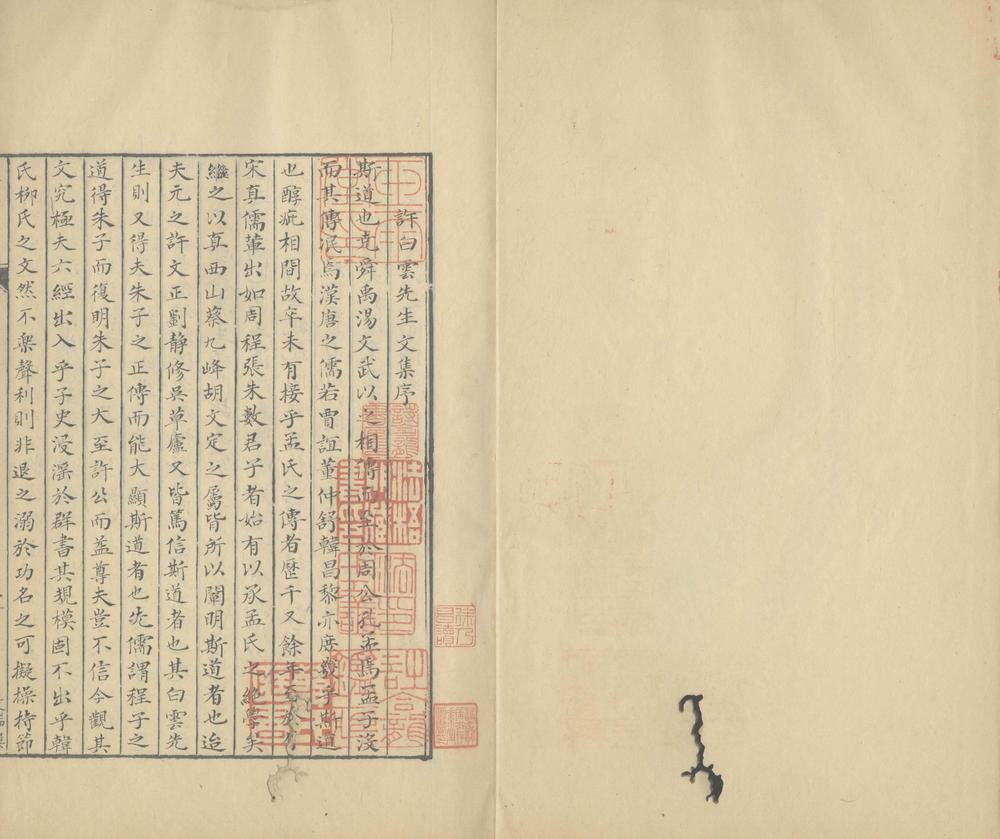 許白雲先生文集序
斯道也堯舜禹湯文武以之相傳而至於周公孔孟焉孟子沒
而其傳泯焉漢唐之儒若賈誼董仲舒韓昌黎亦庶幾乎斯道
也醇疵相間故卒未有接乎孟氏之傳者歷千又餘年至於有
宋真儒輩出如周程張朱數君子者始有以承孟氏之絶學矣
繼之以真西山蔡九峰胡文定之屬皆所以闡明斯道者也迨
夫元之許文正劉静修吳草廬又皆篤信斯道者也其白雲先
生則又得夫朱子之正傳而能大顯斯道者也先儒謂程子之
道得朱子而復明朱子之大至許公而益尊夫豈不信今觀其
文究極夫六經出入乎子史浸滛於群書其規模固不出乎韓
氏柳氏之文然不樂聲利則非退之溺於功名之可擬操持節
徐乃昌讀